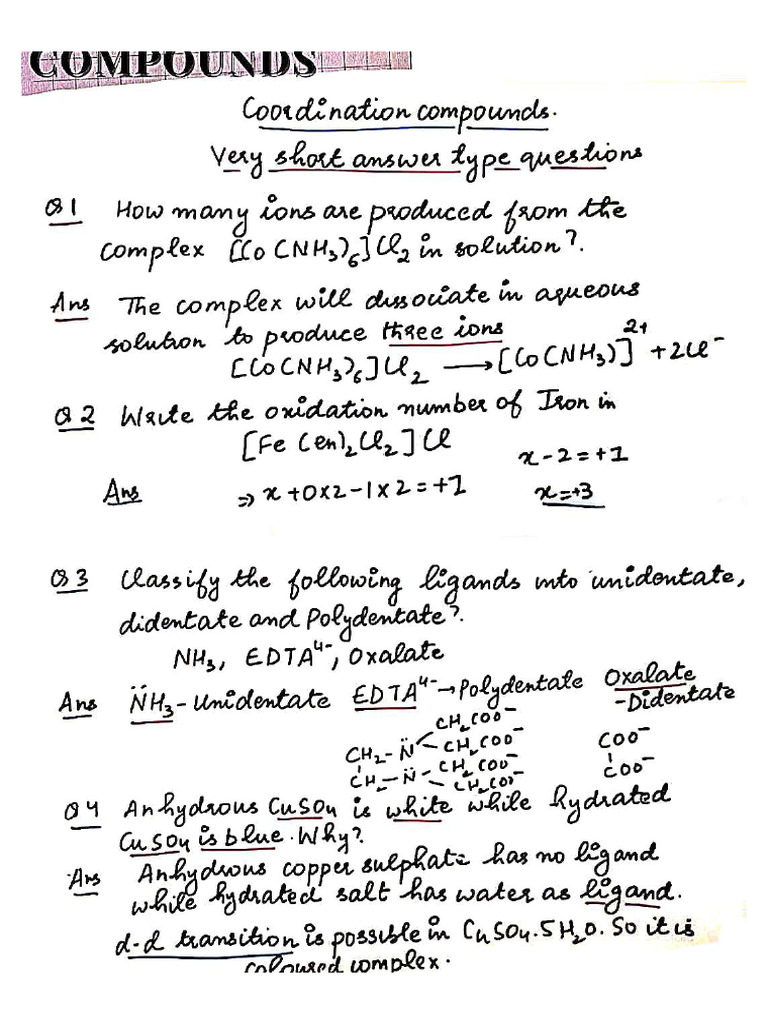 COMPOUNDS
Coordination compounds.
Very short answer type questions
Q1 How many ions are produced from the
complex [Co(NH₃)₆]Cl₂ in solution?.
Ans The complex will dissociate in aqueous
solution to produce three ions
[Co(NH₃)₆]Cl₂ ⟶ [Co(NH₃)]²⁺ + 2Cl⁻
Q2 Write the oxidation number of Iron in
[Fe(en)₂Cl₂]Cl
x - 2 = +1
Ans ⇒ x + 0x2 - 1x2 = +1 x = +3
Q3 Classify the following ligands into unidentate,
didentate and Polydentate?.
NH₃, EDTA⁴⁻, Oxalate
Ans N̈H₃ - Unidentate EDTA⁴⁻ → Polydentate Oxalate
- Didentate
CH₂COO⁻
CH₂ - N̈ CH₂COO⁻ COO⁻
CH₂ - N̈ - CH₂COO⁻ COO⁻
CH₂COO⁻
Q4 Anhydrous CuSO₄ is white while hydrated
CuSO₄ is blue. Why?
Ans Anhydrous copper sulphate has no ligand
while hydrated salt has water as ligand.
d-d transition is possible in CuSO₄.5H₂O. So it is
coloured complex.